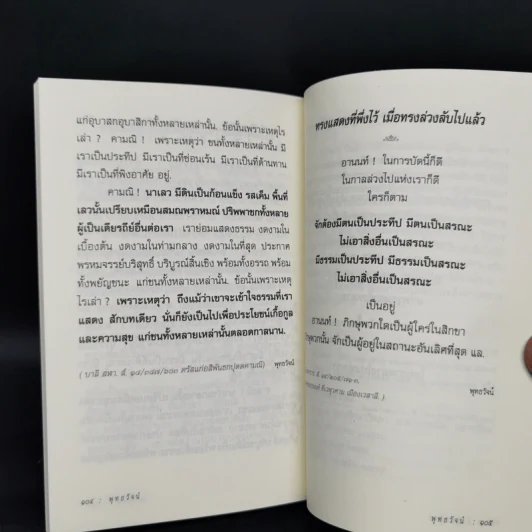 แก่อุบาสกอุบาสิกาทั้งหลายเหล่านั้น. ข้อนั้นเพราะเหตุไร
เล่า ? คามณิ ! เพราะเหตุว่า ชนทั้งหลายเหล่านั้น มี
เราเป็นประทีป มีเราเป็นที่ซ่อนเร้น มีเราเป็นที่ต้านทาน
มีเราเป็นที่พึ่งอาศัย อยู่.
คามณิ ! นาเลว มีดินเป็นก้อนแข็ง รสเค็ม พื้นที่
เลวนั้นเปรียบเหมือนสมณพราหมณ์ ปริพพาชกทั้งหลาย
ผู้เป็นเดียรถีย์อื่นต่อเรา เราย่อมแสดงธรรม งดงามใน
เบื้องต้น งดงามในท่ามกลาง งดงามในที่สุด ประกาศ
พรหมจรรย์บริสุทธิ์ บริบูรณ์สิ้นเชิง พร้อมทั้งอรรถ พร้อม
ทั้งพยัญชนะ แก่ชนทั้งหลายเหล่านั้น. ข้อนั้นเพราะเหตุ
ไรเล่า ? เพราะเหตุว่า ถึงแม้ว่าเขาจะเข้าใจธรรมที่เรา
แสดง สักบทเดียว นั่นก็ยังเป็นไปเพื่อประโยชน์เกื้อกูล
และความสุข แก่ชนทั้งหลายเหล่านั้นตลอดกาลนาน.
พุทธวัจน์
๑๐๔ : พุทธวัจน์
ทรงแสดงที่พึ่งไว้ เมื่อทรงล่วงลับไปแล้ว
อานนท์ ! ในการบัดนี้ก็ดี
ในกาลล่วงไปแห่งเราก็ดี
ใครก็ตาม
จักต้องมีตนเป็นประทีป มีตนเป็นสรณะ
ไม่เอาสิ่งอื่นเป็นสรณะ
มีธรรมเป็นประทีป มีธรรมเป็นสรณะ
ไม่เอาสิ่งอื่นเป็นสรณะ
เป็นอยู่
อานนท์ ! ภิกษุพวกใดเป็นผู้ใคร่ในสิกขา
ภิกษุพวกนั้น จักเป็นผู้อยู่ในสถานะอันเลิศที่สุด แล.
พุทธวัจน์
พุทธวัจน์ : ๑๐๕